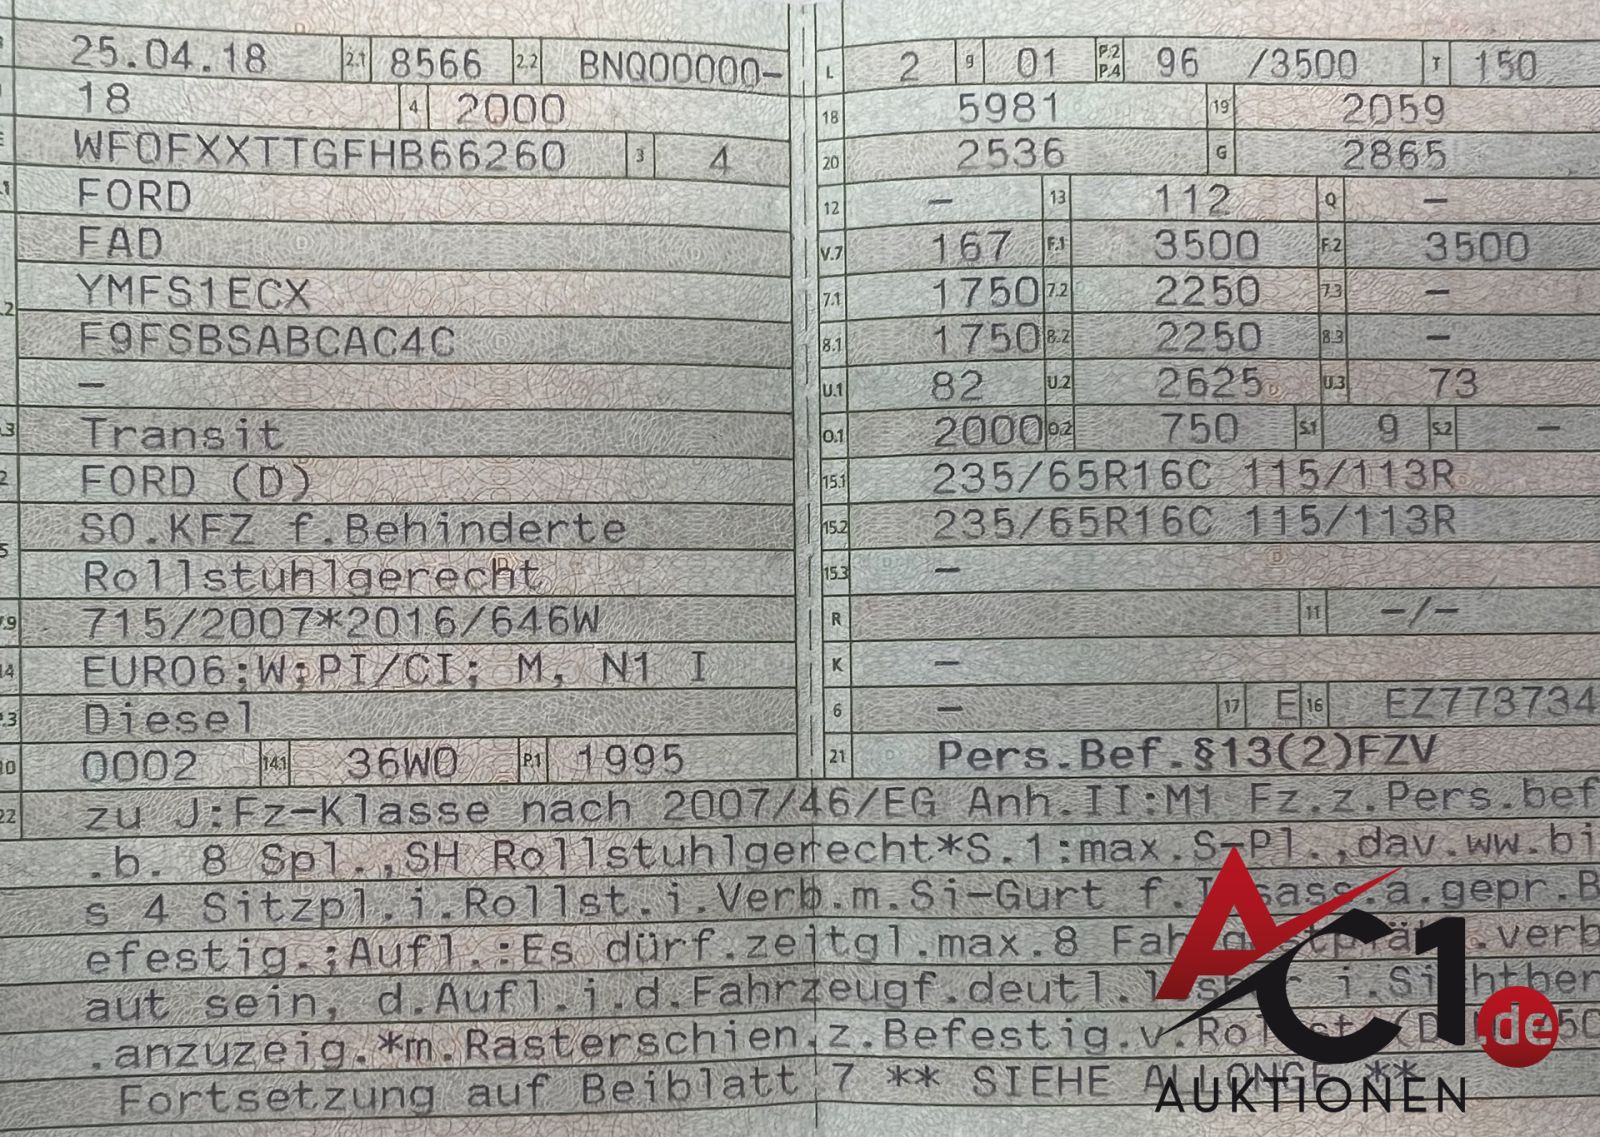 25.04.18 2.1 8566 2.2 BNQ00000- L 2 9 01 P.2 P.4 96 /3500 T 150
18 4 2000 18 5981 19 2059
WF0FXXTTGFHB66260 3 4 20 2536 G 2865
.1 FORD 12 – 13 112 Q –
FAD V.7 167 F.1 3500 F.2 3500
.2 YMFS1ECX 7.1 1750 7.2 2250 7.3 –
F9FSBSABCAC4C 8.1 1750 8.2 2250 8.3 –
– U.1 82 U.2 2625 U.3 73
.3 Transit O.1 2000 O.2 750 S.1 9 S.2 –
2 FORD (D) 15.1 235/65R16C 115/113R
SO.KFZ f.Behinderte 15.2 235/65R16C 115/113R
5 Rollstuhlgerecht 15.3 –
.9 715/2007*2016/646W R 11 –/–
14 EURO6;W;PI/CI; M, N1 I K –
P.3 Diesel 6 – 17 E 16 EZ773734
10 0002 14.1 36W0 P.1 1995 21 Pers.Bef.§13(2)FZV
22 zu J:Fz-Klasse nach 2007/46/EG Anh.II:M1 Fz.z.Pers.bef
.b. 8 Spl.,SH Rollstuhlgerecht*S.1:max.S-Pl.,dav.ww.bi
s 4 Sitzpl.i.Rollst.i.Verb.m.Si-Gurt f. a.gepr.B
efestig.;Aufl.:Es dürf.zeitgl.max.8 .verb
aut sein, d.Aufl.i.d.Fahrzeugf.deutl. i.
.anzuzeig.*m.Rasterschien.z.Befestig.v.
Fortsetzung auf Beiblatt 7 ** SIEHE **
AC1.de
AUKTIONEN